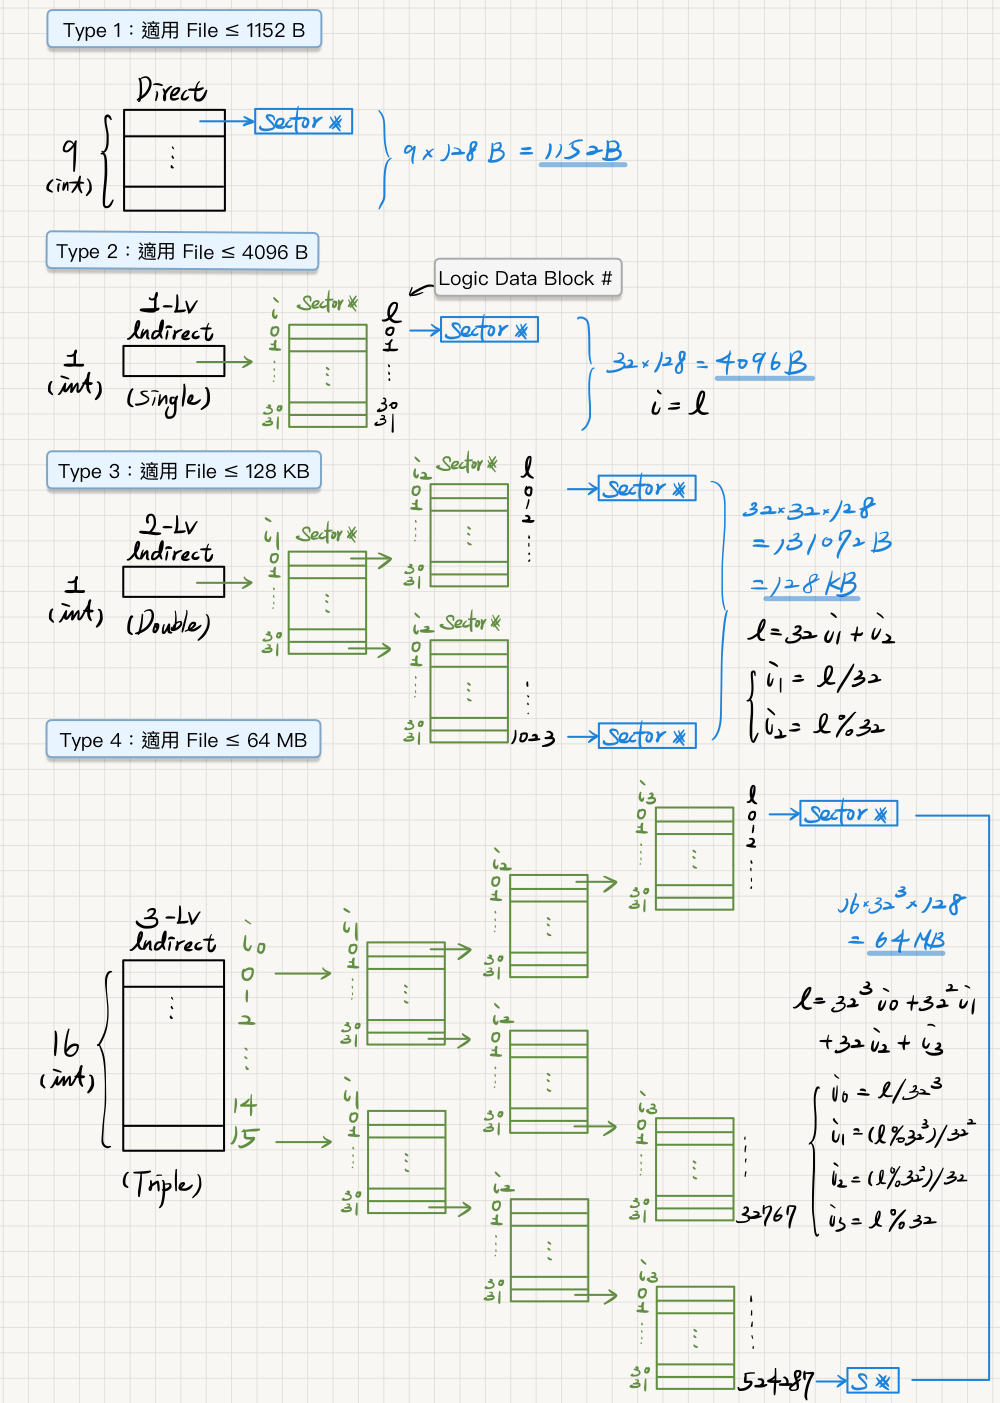 Type 1：適用 File ≤ 1152 B
Direct
Sector #
9
(int)
9 × 128 B = 1152B
Type 2：適用 File ≤ 4096 B
Logic Data Block #
1-Lv
Indirect
1
(int)
(Single)
i
Sector #
l
0
0
1
1
30
30
31
31
Sector #
32×128 = 4096B
i = l
Type 3：適用 File ≤ 128 KB
2-Lv
Indirect
1
(int)
(Double)
i1
Sector #
0
1
30
31
i2
Sector #
l
0
0
1
1
2
30
31
Sector #
i2
Sector #
0
1
30
31
1023
Sector #
32×32×128
=131072 B
=128 KB
l=32 i1 + i2
i1 = l/32
i2 = l%32
Type 4：適用 File ≤ 64 MB
3-Lv
Indirect
16
(int)
(Triple)
i0
0
1
2
14
15
i1
0
1
30
31
i1
0
1
30
31
i2
0
1
30
31
i2
0
1
30
31
i2
0
1
30
31
i3
l
0
0
1
1
2
30
31
Sector #
i3
0
1
30
31
32767
i3
0
1
30
31
524287
S #
16×32³×128
= 64 MB
l=32³ i0 +32² i1
+32 i2 + i3
i0 = l/32³
i1 =(l%32³)/32²
i2 =(l%32²)/32
i3 = l%32